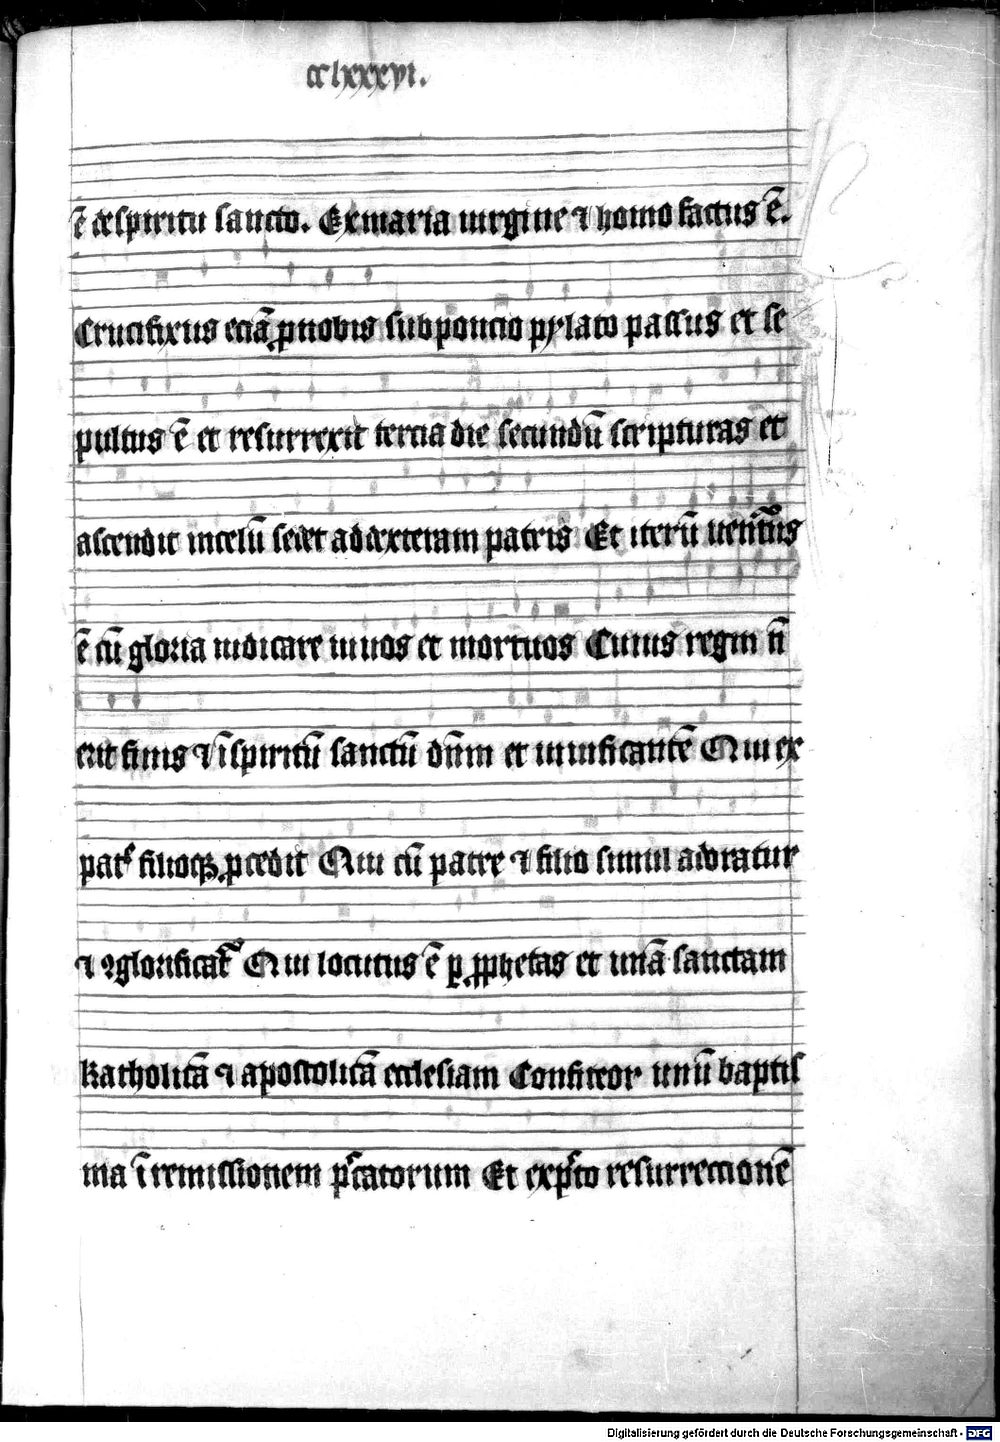 cclxxxvi.
ē de spiritu sancto. Ex maria uirgine ⁊ homo factus ē.
Crucifixus eciā ꝓ nobis sub poncio pylato passus et se
pultus ē et resurrexit tercia die secundū scripturas et
ascendit in celū sedet ad dexteram patris Et iterū uentur᷒
ē cū gloria iudicare uiuos et mortuos Cuius regni nō
erit finis ⁊ ī spiritū sanctū dn̄m et uiuificantē Qui ex
patre filioqꝫ ꝓcedit Qui cū patre ⁊ filio simul adoratur
⁊ ꝯglorificat᷑ Qui locutus ē ꝑ ꝓphetas et unā sanctam
katholicā ⁊ apostolicā ecclesiam Confiteor unū baptis
ma ī remissionem peccatorum Et expecto resurrectionē
Digitalisierung gefördert durch die Deutsche Forschungsgemeinschaft - DFG